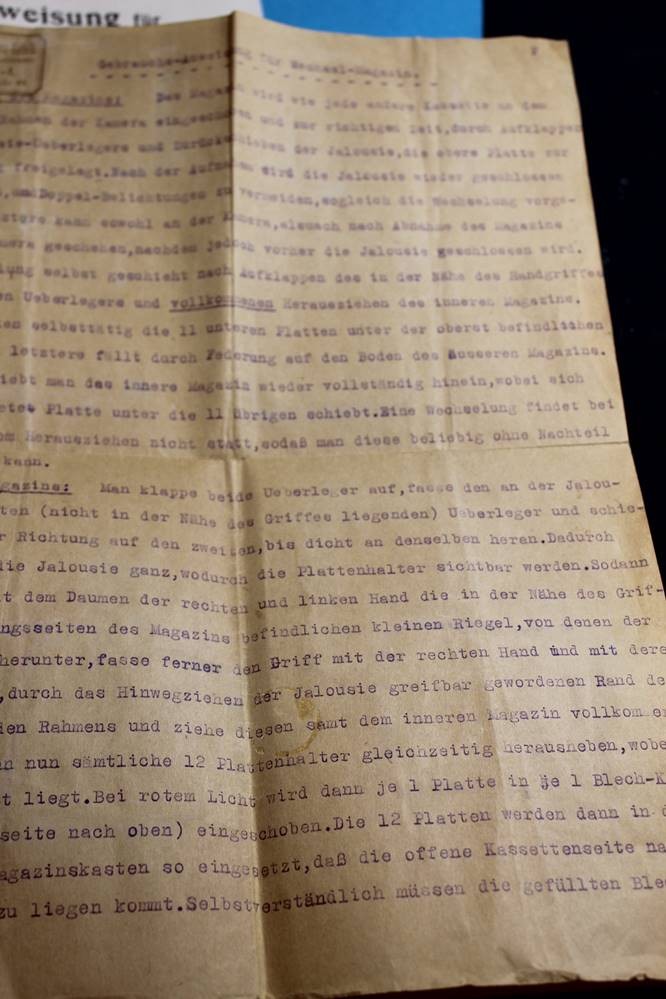 weisung für
Gebrauchs-Anweisung für Wechsel-Magazin.
Magazins: Das Magazin wird wie jede andere Kassette an dem
Rahmen der Kamera eingeschoben und zur richtigen Zeit, durch Aufklappen
Ueberlegers und Zurückschieben der Jalousie, die obere Platte zur
freigelegt. Nach der Aufnahme wird die Jalousie wieder geschlossen
, und Doppel-Belichtungen zu vermeiden, sogleich die Wechselung vorge-
tere kann sowohl an der Kamera, alsuach nach Abnahme des Magazins
mera geschehen, nachdem jedoch vorher die Jalousie geschlossen wird.
lung selbst geschieht nach Aufklappen des in der Nähe des Handgriffes
en Ueberlegers und vollkommenen Herausziehen des inneren Magazins.
en selbsttätig die 11 unteren Platten unter der oberst befindlichen
letztere fällt durch Federung auf den Boden des äusseren Magazins.
iebt man das innere Magazin wieder vollständig hinein, wobei sich
tete Platte unter die 11 übrigen schiebt. Eine Wechselung findet bei
om Herausziehen nicht statt, sodaß man diese beliebig ohne Nachteil
kann.
gazins: Man klappe beide Ueberleger auf, fasse den an der Jalou-
ten (nicht in der Nähe des Griffes liegenden) Ueberleger und schie-
r Richtung auf den zweiten, bis dicht an denselben heran. Dadurch
die Jalousie ganz, wodurch die Plattenhalter sichtbar werden. Sodann
t dem Daumen der rechten und linken Hand die in der Nähe des Grif-
ngsseiten des Magazins befindlichen kleinen Riegel, von denen der
herunter, fasse ferner den Griff mit der rechten Hand und mit dere
, durch das Hinwegziehen der Jalousie greifbar gewordenen Rand de
den Rahmens und ziehe diesen samt dem inneren Magazin vollkommen
n nun sämtliche 12 Plattenhalter gleichzeitig herausheben, wobe
t liegt. Bei rotem Licht wird dann je 1 Platte in je 1 Blech-K
seite nach oben) eingeschoben. Die 12 Platten werden dann in d
agazinskasten so eingesetzt, daß die offene Kassettenseite na
zu liegen kommt. Selbstverständlich müssen die gefüllten Ble